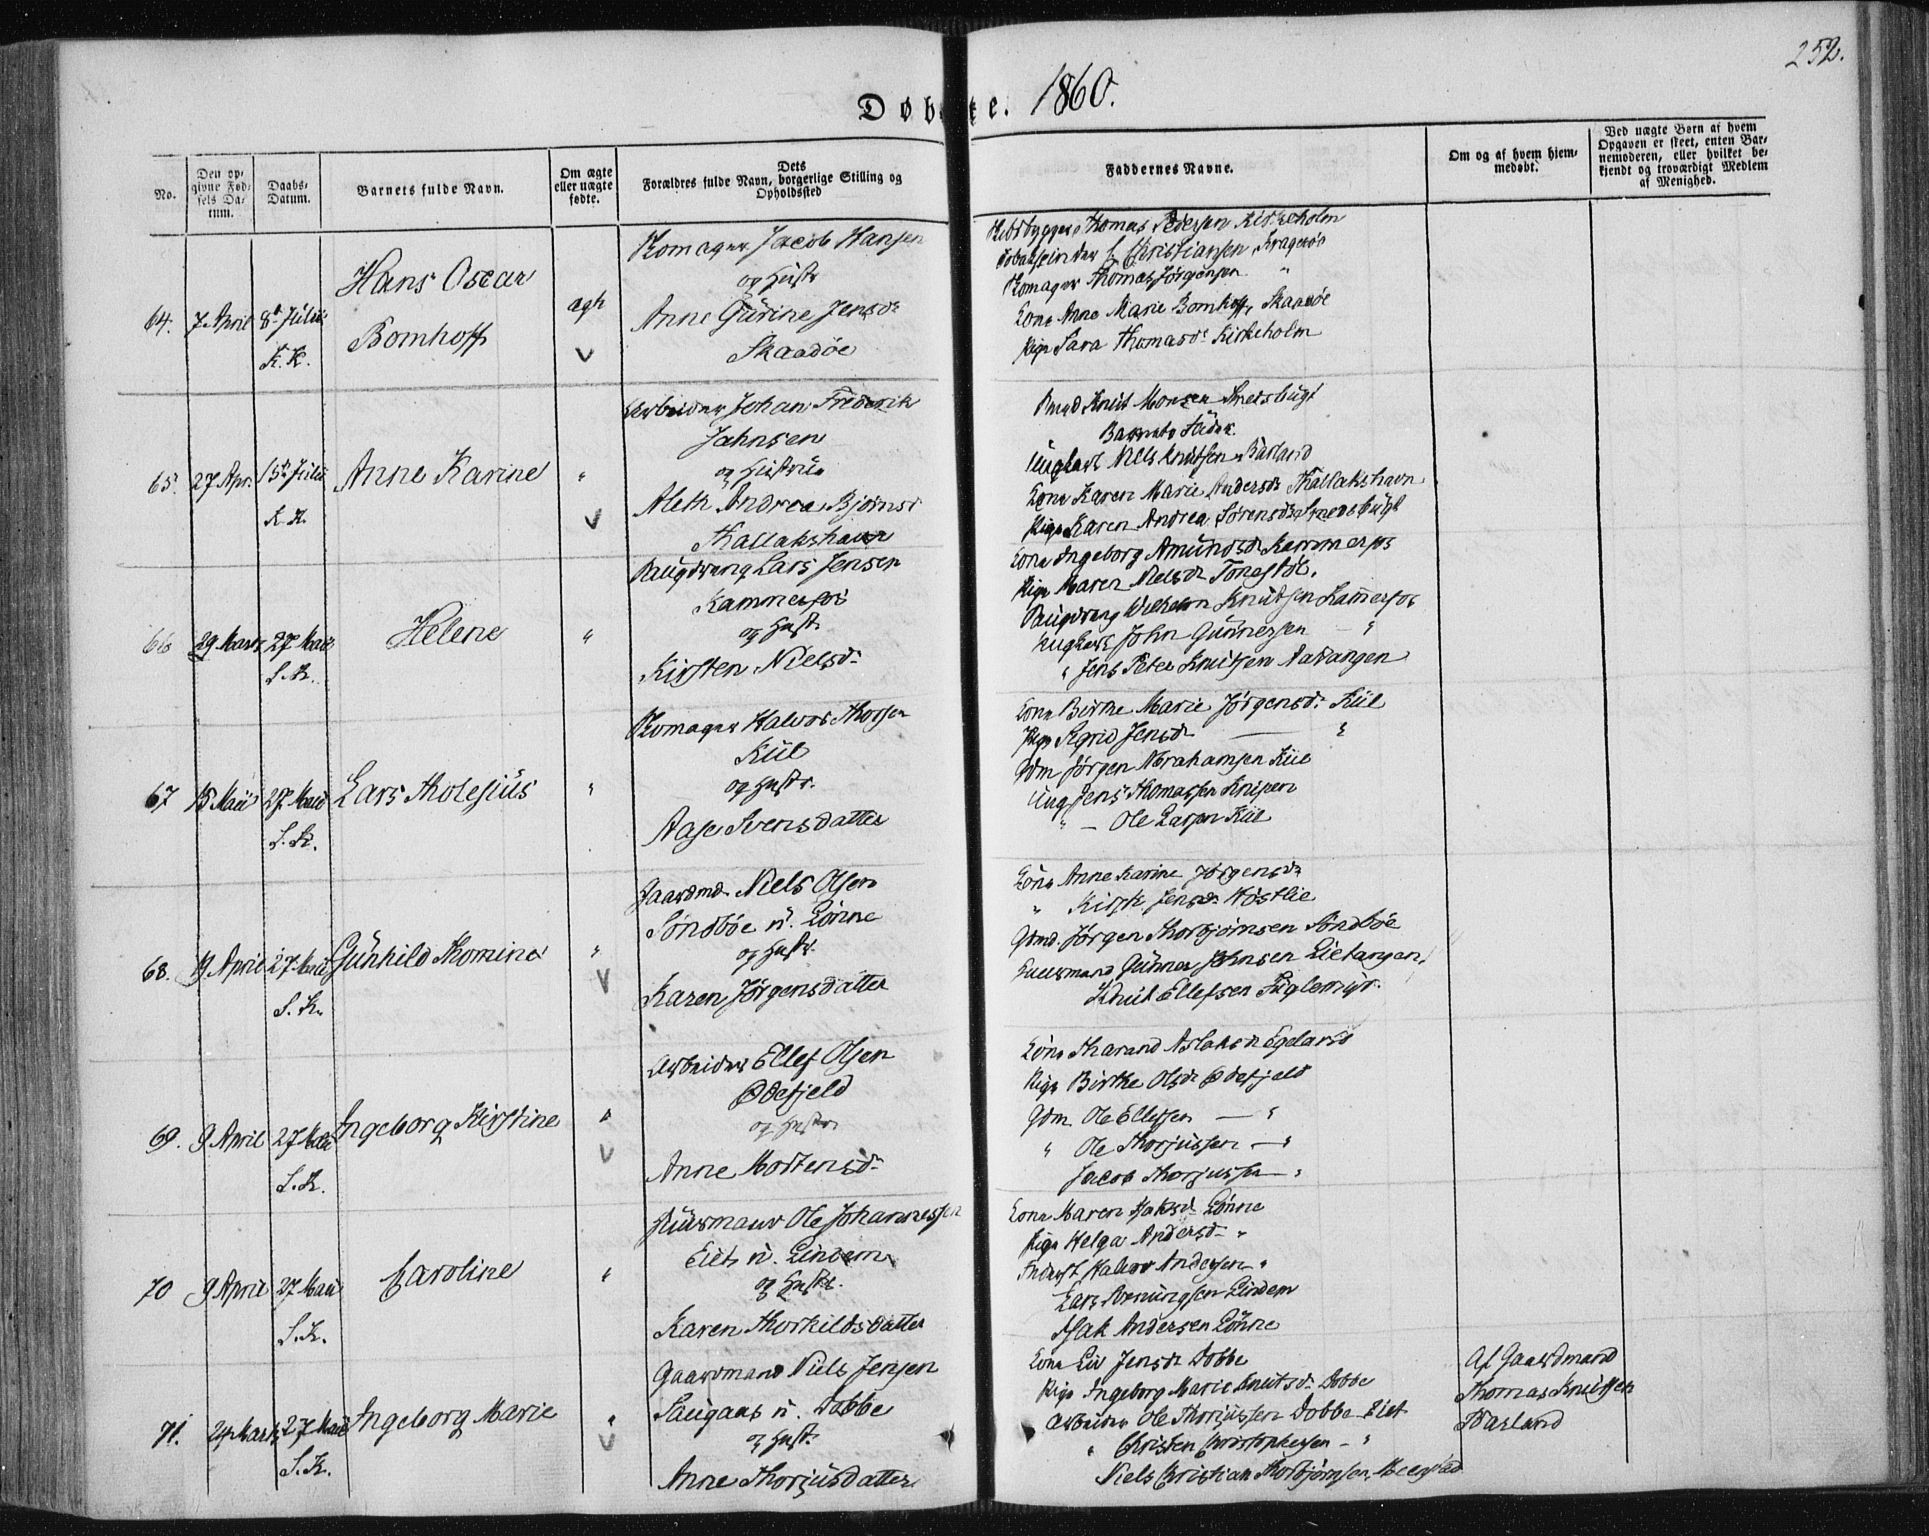 252.
Døbte. 1860.
No.
Den opgivne Fødsels Datum.
Daabs-Datum.
Barnets fulde Navn.
Om ægte eller uægte fødte.
Dets Forældres fulde Navn, borgerlige Stilling og Opholdssted
Faddernes Navne.
Om og af hvem hjemmedøbt.
Ved uægte Børn af hvem Opgaven er skeet, enten Barnemoderen, eller hvilket bekjendt og troværdigt Medlem af Menighed.
64. 7 April 8d Julii
K. K.
Hans Oscar
Bomhoff
ægte
Skomager Jacob Hansen
og Hustr
Anne Gurine Jensd.
Skaadøe
Thomas Pedersen Kirkeholm
Christiansen, Kragerøe
Skomager Thomas Jørgensen "
Kona Anne Marie Bomhoff, Skaadøe
Pige Sara Thomasd. Kirkeholm
65. 27 Apr. 15d Julii
K. K.
Anne Karine
"
Arbeider Johan Frederik
Jahnsen
og Hustrue
Aleth Andrea Bjørnsd
Kallakshavn
Knut Monsen Smedsbugt
Barnets Fader.
Ungkarl Niels Knutsen Barland
Kona Karen Marie Andersd. Kallakshavn
Pige Karen Andrea Sørensd. Smedsbugt
66 29 Marts 27 Maii
S. K.
Helene
"
Saugdreng Lars Jensen
Kammerfos
og Hust.
Kirsten Nielsd.
Kona Ingeborg Amundsd. Kammerfos
Pige Maren Nielsd. Tonestøl.
Saugdreng Wilhelm Knutsen Kammerfos
Ungkarl John Gunnersen — "
" Jens Peter Knutsen Aatangen
67 15 Maii 27 Maii
S. K.
Lars Tholesius
"
Skomager Halvor Thorsen
Kiil
og Hustr.
Aase Svensdatter
Kona Birthe Marie Jørgensd. Kiil
Pige Sigrid Jensd. — "
Gdm Jørgen Abrahamsen Kiil
Ung Jens Thomassen Knipen
" — Ole Larsen Kiil
68. 19 April 27 Maii
S. K.
Gunhild Thomine
"
Gaardmd. Niels Olsen
Søndbøe u. Lønne
og Hustr.
Karen Jørgensdatter
Kona Anne Karine Jørgensd.
" Kirsti Jensd. Høstlie
Gdmd. Jørgen Thorbjørnsen Søndbøe
Gunner Johnsen Lietangen,
Knut Ellefsen Fuglemyr.
69. 9 April 27 Maii
S. K.
Ingeborg Kirstine
"
Arbeider Ellef Olsen
Ødefjeld
og Hustr.
Anne Mortensd.
Kona Tharand Aslaksd. Egeland
Pige Birthe Olsd. Ødefjeld
Gdm Ole Ellefsen — "
" Ole Thorjussen — "
Jacob Thorjussen — "
70 9 April 27 Maii
S. K.
Caroline
"
Huusmand Ole Johannessen
Eiet u. Lindem
og Hustr.
Karen Thorkildsdatter
Kona Maren Isaksd. Lønne
Pige Helga Andersd. "
Halvor Andersen "
Lars Lindem
Isak Andersen Lønne
71. 24 Marts 27 Maii
S. K.
Ingeborg Marie
"
Gaardmand Niels Jensen
u. Dobbe
og Hust.
Anne Thorjusdatter
Kona Liv Jensd. Dobbe
Pige Ingeborg Marie Knutsd. Dobbe
Arbeider Ole Thorjussen Dobbe Eiet
" Christen Christophersen — "
Niels Christian Thorbjørnsen
Af Gaardmand
Thomas Knutsen
Barland